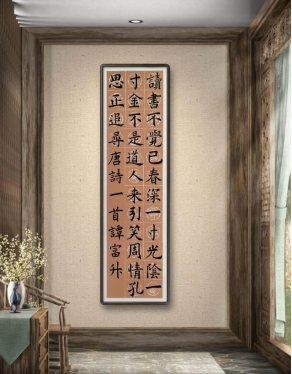 讀書不覺已春深一寸光陰一
寸金不是道人来引笑周情孔
思正追尋唐詩一首譚富升